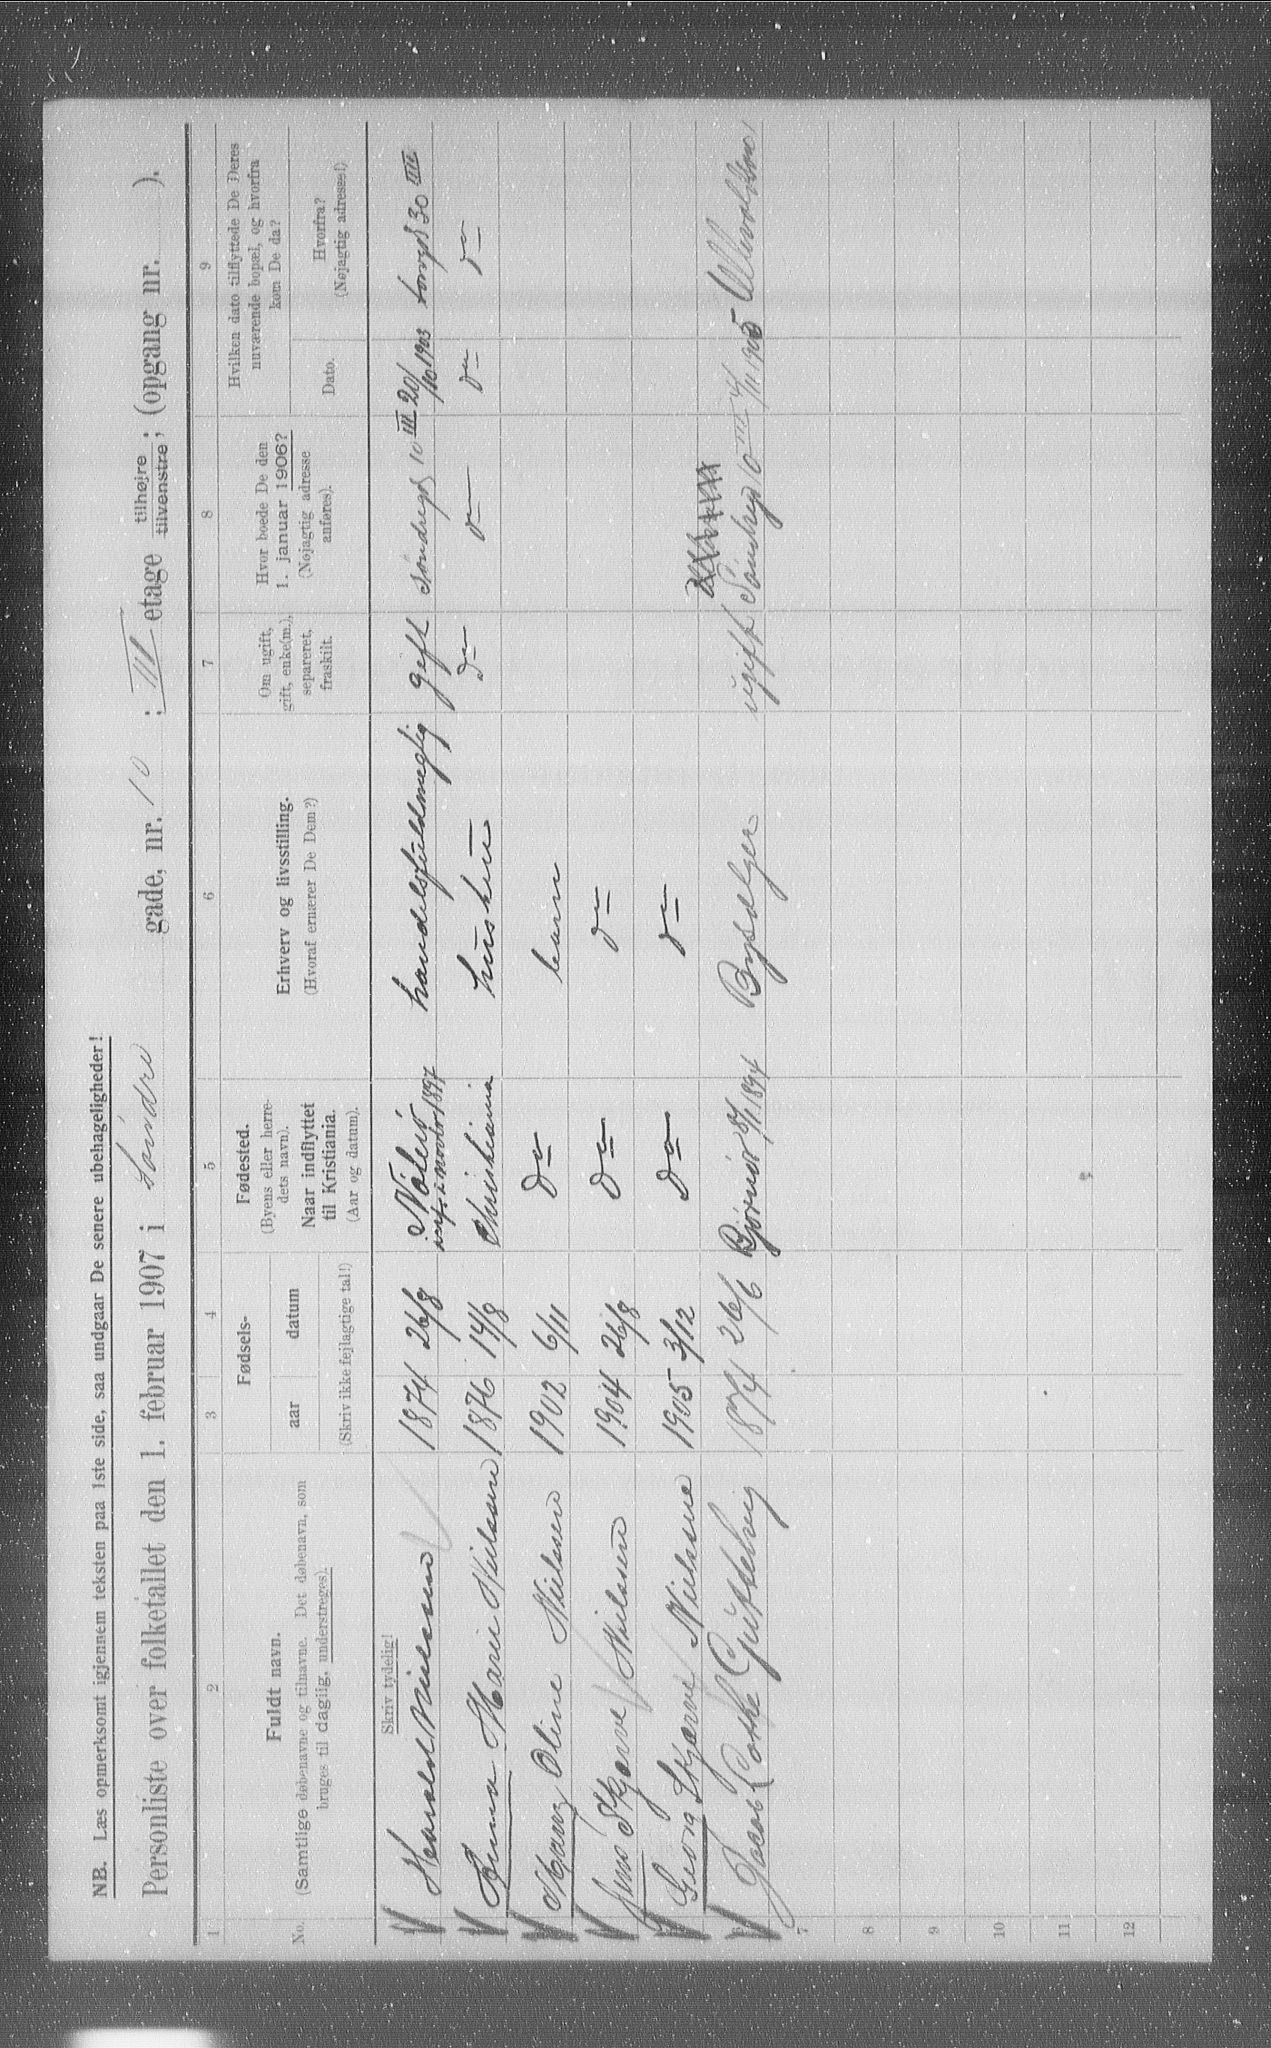 NB. Læs opmerksomt igjennem teksten paa 1ste side, saa undgaar De senere ubehageligheder!
Personliste over folketallet den 1. februar 1907 i Søndre gade, nr. 10 ; III etage tilhøjre tilvenstre; (opgang nr. ).
1 2 3 4 5 6 7 8 9
No.
Fuldt navn.
(Samtlige døbenavne og tilnavne. Det døbenavn, som
bruges til daglig, understreges).
Fødsels-
aar datum
(Skriv ikke fejlagtige tal!)
Fødested.
(Byens eller herre-
dets navn).
Naar indflyttet
til Kristiania.
(Aar og datum).
Erhverv og livsstilling.
(Hvoraf ernærer De Dem?)
Om ugift,
gift, enke(m.),
separeret,
fraskilt.
Hvor boede De den
1. januar 1906?
(Nøjagtig adresse
anføres).
Hvilken dato tilflyttede De Deres
nuværende bopæl, og hvorfra
kom De da?
Dato.
Hvorfra?
(Nøjagtig adresse!)
Skriv tydelig!
Harald Nielssen 1874 26/8 1897 handelsfuldmægtig gift Søndregd 10 III 20/10 1903 30 III
Anna Marie Nielssen 1876 14/8 Christiania huskun do do do do
Oline Nielssen 1902 6/11 Do barn
Jens Skjerve Nielssen 1904 26/8 Do do
Georg Skjerve Nielssen 1905 3/12 Do do
Jacob 1874 26/6 Bjørnør 1894 Bysælger ugift Søndregd 10 III 1905
7
8
9
10
11
12